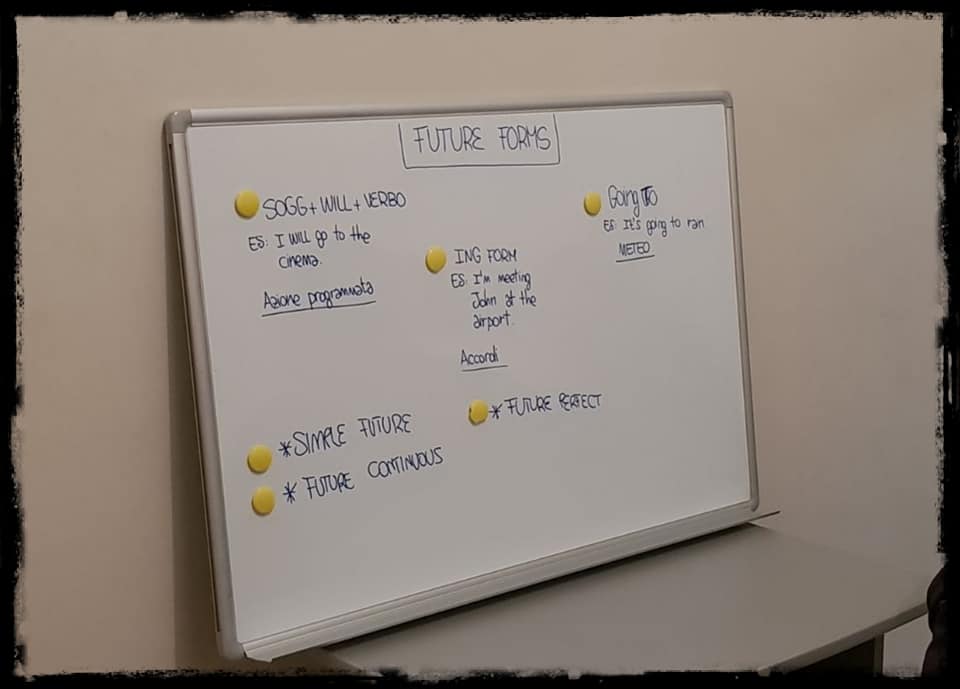 FUTURE FORMS
SOGG+ WILL + VERBO
ES: I WILL go to the
cinema.
Azione programmata
ING FORM
ES: I'm meeting
John at the
airport.
Accordi
Going TO
ES: It's going to rain
METEO
*SIMPLE FUTURE
* FUTURE CONTINUOUS
* FUTURE PERFECT